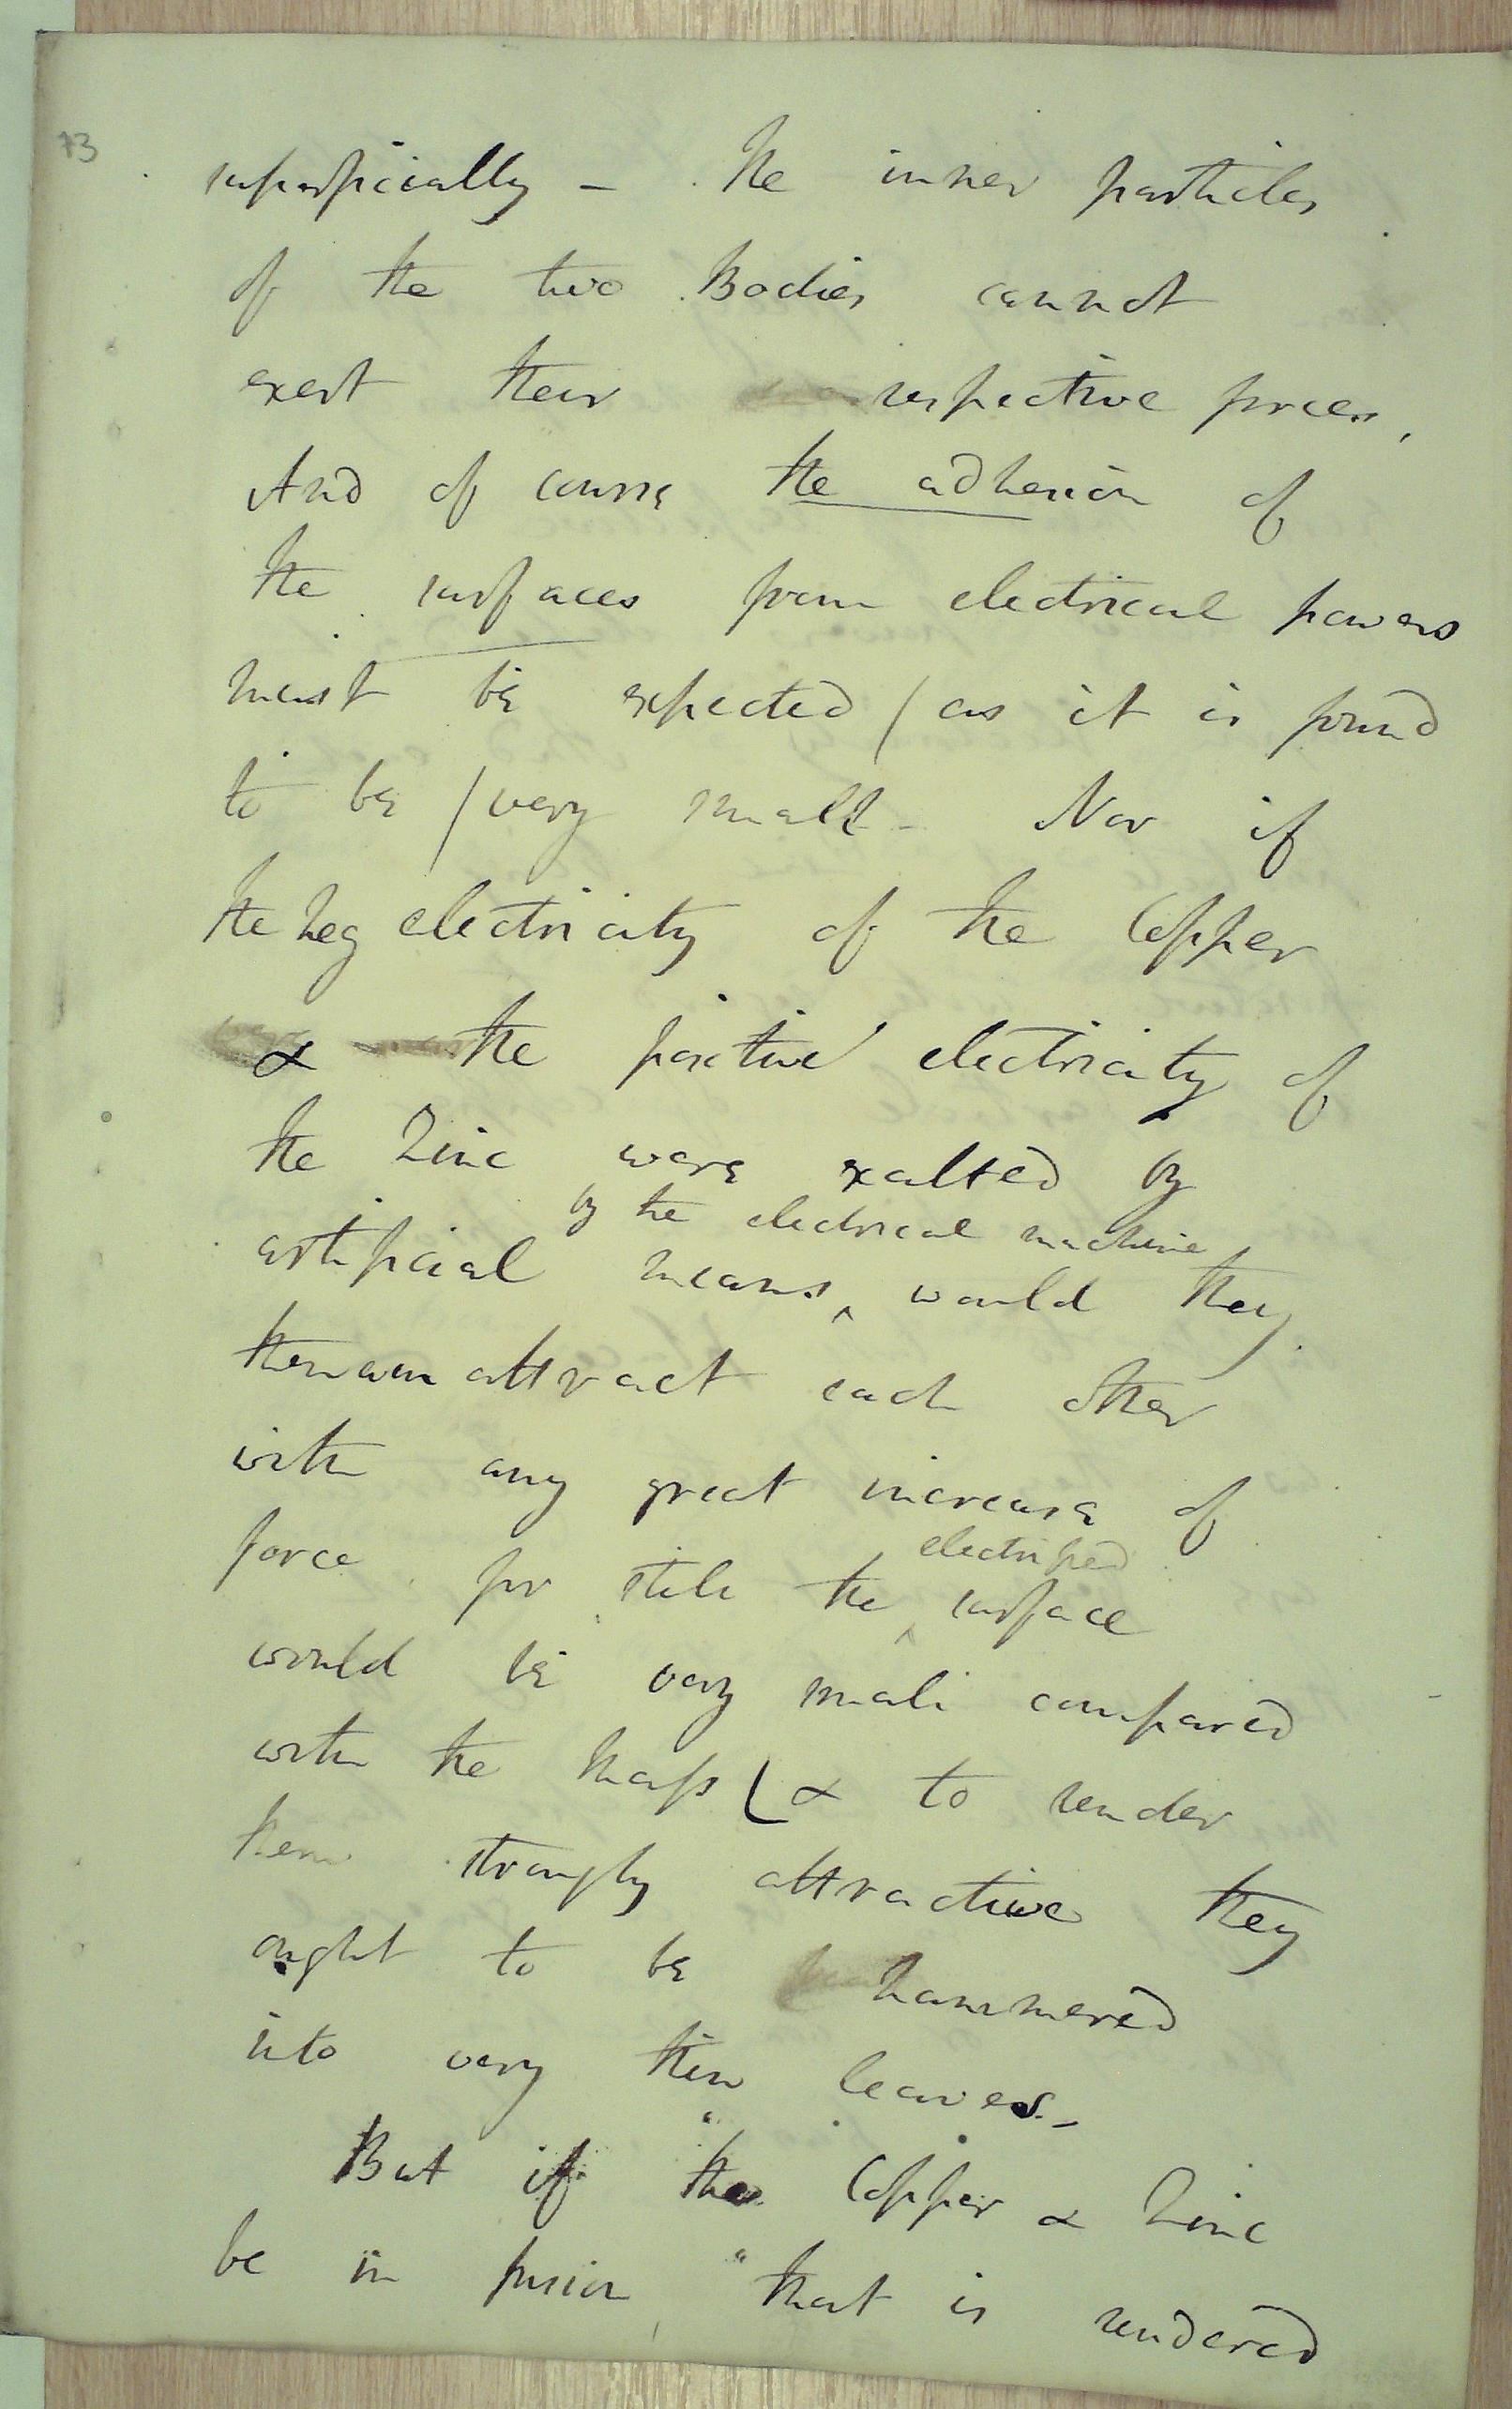 73
superficially – the inner particles
of the two Bodies cannot
exert their respective forces,
And of course the adhesion of
the surfaces from electrical powers
must be expected / as it is found
to be / very small – Nor if
the neg electricity of the Copper
& the positive electricity of
the Zinc were exalted by
by the electrical machine
artificial means ^ would they
attract each other
with any great increase of
electrified
force for still the ^ surface
would be very small compared
with the mass ( & to render
them strongly attractive they
ought to be hammered
into very thin leaves. –
But if the Copper & Zinc
be in fusion "that is rendered